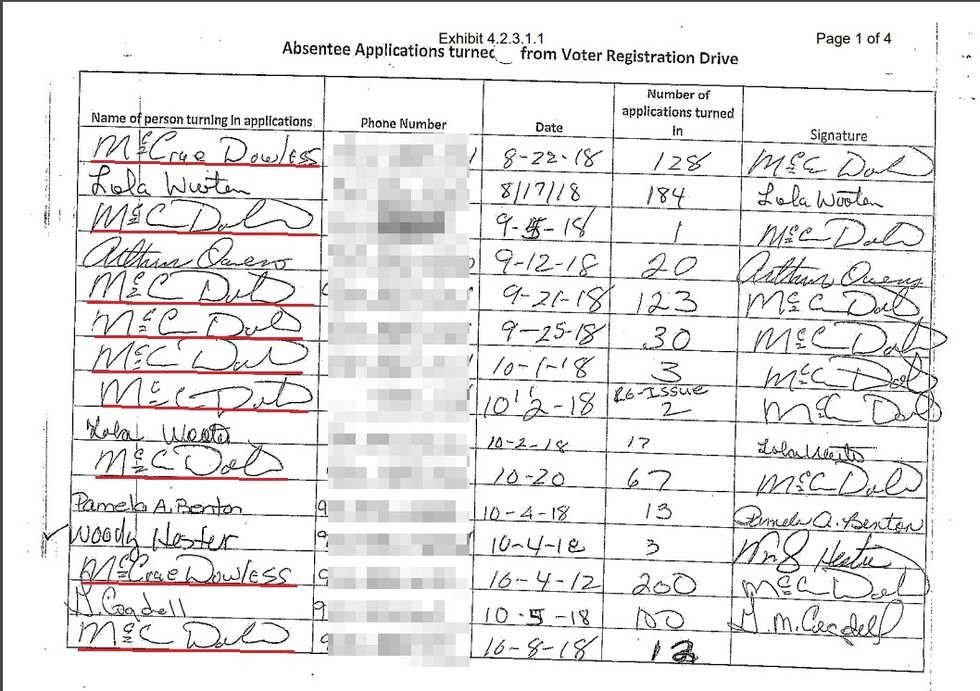 Exhibit 4.2.3.1.1 Page 1 of 4
Absentee Applications turned from Voter Registration Drive
Name of person turning in applications Phone Number Date Number of applications turned in Signature
McCrae Dowless 8-22-18 128 McC Dal
Lola Wooten 8/17/18 184 Lola Wooten
McC Dal 9-5-18 1 McC Dal
Arthur Owens 9-12-18 20 Arthur Owens
McC Dal 9-21-18 123 McC Dal
McC Dal 9-25-18 30 McC Dal
McC Dal 10-1-18 3 McC Dal
McC Dal 10-2-18 Re-Issue 2 McC Dal
Lola Wooten 10-2-18 17 Lola Wooten
McC Dal 10-20 67 McC Dal
Pamela A. Benton 9 10-4-18 13 Pamela A. Benton
Woody Hester 9 10-4-18 3 Hester
McCrae Dowless 9 10-4-12 200 McC Dal
J. Cogdell 9 10-5-18 100 J. M. Cogdell
McC Dal 9 10-8-18 12